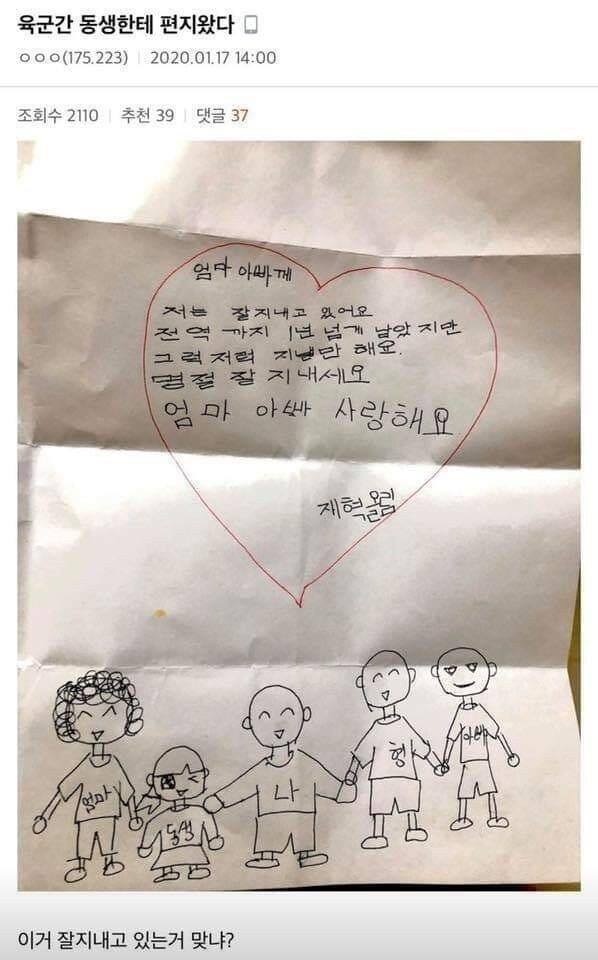 육군간 동생한테 편지왔다
ㅇㅇㅇ(175.223) 2020.01.17 14:00
조회수 2110 추천 39 댓글 37
엄마 아빠께
저는 잘지내고 있어요
전역 까지 1년 넘게 남았지만
그럭저럭 지낼만 해요.
명절 잘 지내세요
엄마 아빠 사랑해요
재혁올림
엄마 동생 나 형 아빠
이거 잘지내고 있는거 맞냐?